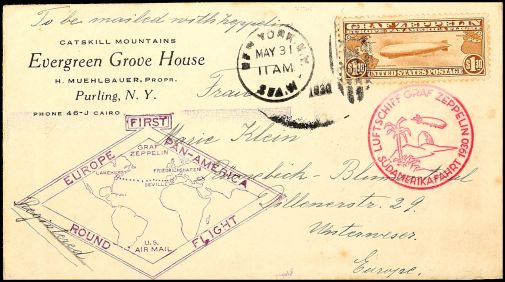 To be mailed with zeppelin
CATSKILL MOUNTAINS
Evergreen Grove House
H. MUEHLBAUER, PROPR.
Purling, N. Y.
PHONE 46-J CAIRO
NEW YORK N.Y.
MAY 31
11 AM
1930
GRAF ZEPPELIN
$1.30 $1.30
UNITED STATES POSTAGE
LUFTSCHIFF GRAF ZEPPELIN
SÜDAMERIKAFAHRT 1930
Frau
Marie Klein
29.
Unterweser.
Europe.
FIRST
EUROPE PAN-AMERICA
GRAF ZEPPELIN
LAKEHURST
FRIEDRICHSHAFEN
SEVILLE
U.S. AIR MAIL
ROUND FLIGHT
Registered